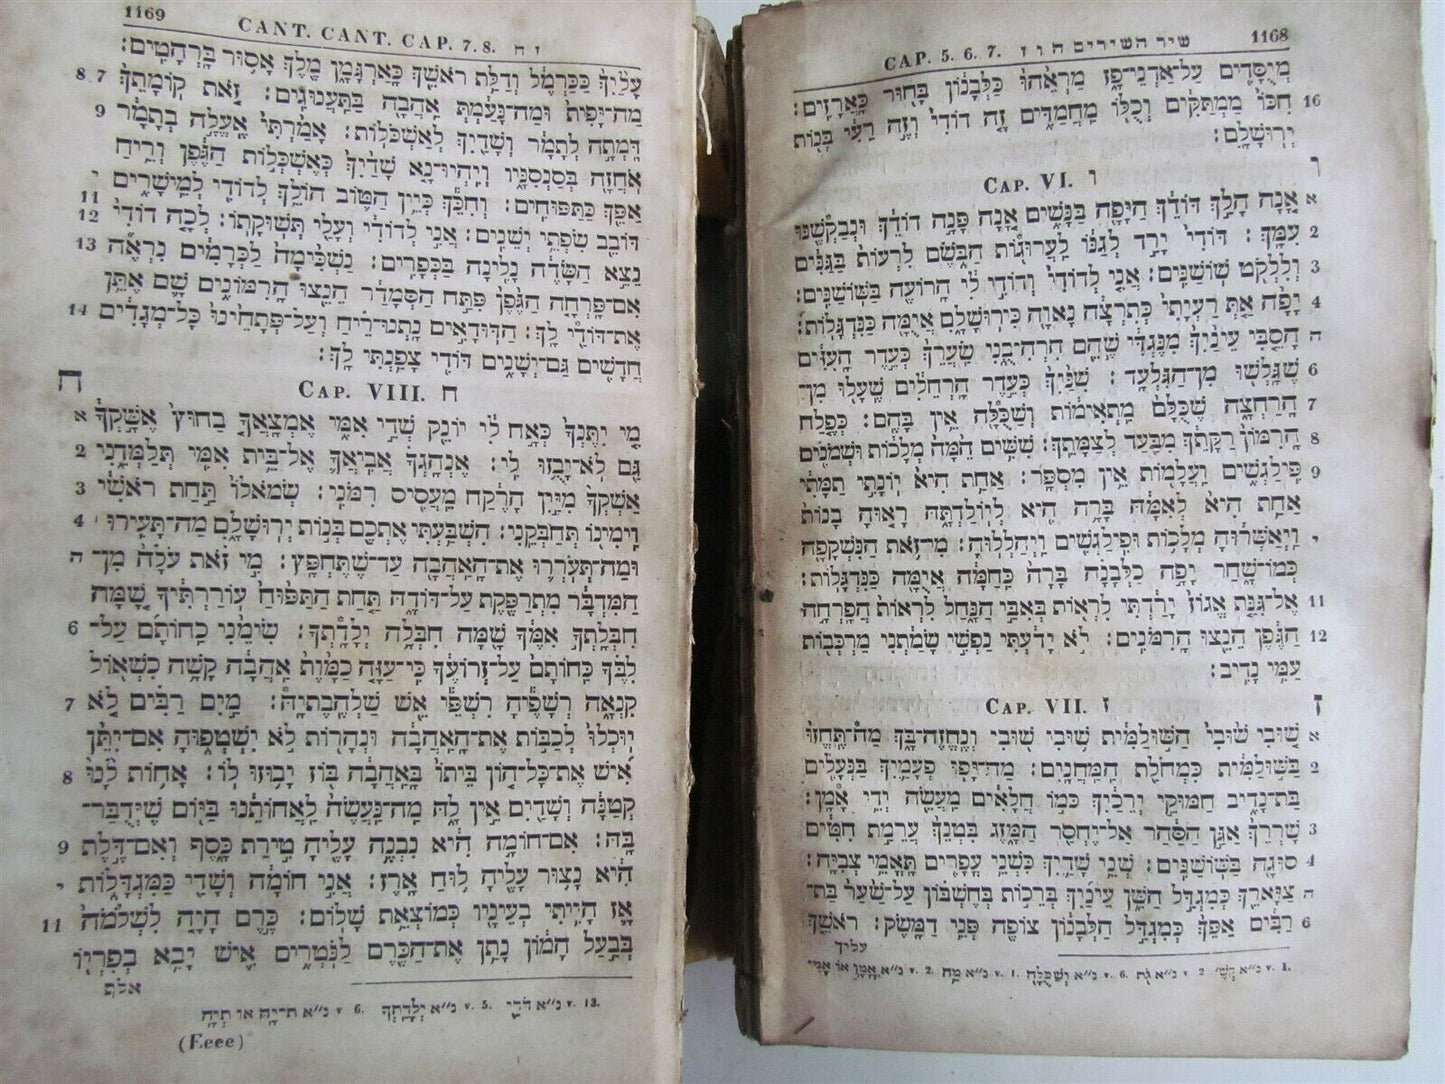 CAP. 5. 6. 7. שיר השירים ה ו ז 1168
מְיֻסָּדִים עַל־אַדְנֵי־פָז מַרְאֵהוּ כַּלְּבָנוֹן בָּחוּר כָּאֲרָזִים׃
16 חִכּוֹ מַמְתַקִּים וְכֻלּוֹ מַחֲמַדִּים זֶה דוֹדִי וְזֶה רֵעִי בְּנוֹת
יְרוּשָׁלִָם׃
ו CAP. VI. ו
א אָנָה הָלַךְ דּוֹדֵךְ הַיָּפָה בַּנָּשִׁים אָנָה פָּנָה דוֹדֵךְ וּנְבַקְשֶׁנּוּ
2 עִמָּךְ׃ דּוֹדִי יָרַד לְגַנּוֹ לַעֲרוּגוֹת הַבֹּשֶׂם לִרְעוֹת בַּגַּנִּים
3 וְלִלְקֹט שׁוֹשַׁנִּים׃ אֲנִי לְדוֹדִי וְדוֹדִי לִי הָרוֹעֶה בַּשּׁוֹשַׁנִּים׃
4 יָפָה אַתְּ רַעְיָתִי כְּתִרְצָה נָאוָה כִּירוּשָׁלִָם אֲיֻמָּה כַּנִּדְגָּלוֹת׃
ה הָסֵבִּי עֵינַיִךְ מִנֶּגְדִּי שֶׁהֵם הִרְהִיבֻנִי שַׂעְרֵךְ כְּעֵדֶר הָעִזִּים
6 שֶׁגָּלְשׁוּ מִן־הַגִּלְעָד׃ שִׁנַּיִךְ כְּעֵדֶר הָרְחֵלִים שֶׁעָלוּ מִן־
7 הָרַחְצָה שֶׁכֻּלָּם מַתְאִימוֹת וְשַׁכֻּלָה אֵין בָּהֶם׃ כְּפֶלַח
8 הָרִמּוֹן רַקָּתֵךְ מִבַּעַד לְצַמָּתֵךְ׃ שִׁשִּׁים הֵמָּה מְלָכוֹת וּשְׁמֹנִים
9 פִּילַגְשִׁים וַעֲלָמוֹת אֵין מִסְפָּר׃ אַחַת הִיא יוֹנָתִי תַמָּתִי
אַחַת הִיא לְאִמָּהּ בָּרָה הִיא לְיוֹלַדְתָּהּ רָאוּהָ בָנוֹת
י וַיְאַשְּׁרוּהָ מְלָכוֹת וּפִילַגְשִׁים וַיְהַלְלוּהָ׃ מִי־זֹאת הַנִּשְׁקָפָה
כְּמוֹ־שָׁחַר יָפָה כַלְּבָנָה בָּרָה כַּחַמָּה אֲיֻמָּה כַּנִּדְגָּלוֹת׃
11 אֶל־גִּנַּת אֱגוֹז יָרַדְתִּי לִרְאוֹת בְּאִבֵּי הַנָּחַל לִרְאוֹת הֲפָרְחָה
12 הַגֶּפֶן הֵנֵצוּ הָרִמֹּנִים׃ לֹא יָדַעְתִּי נַפְשִׁי שָׂמַתְנִי מַרְכְּבוֹת
עַמִּי נָדִיב׃
ז CAP. VII. ז
א שׁוּבִי שׁוּבִי הַשּׁוּלַמִּית שׁוּבִי שׁוּבִי וְנֶחֱזֶה־בָּךְ מַה־תֶּחֱזוּ
2 בַּשּׁוּלַמִּית כִּמְחֹלַת הַמַּחֲנָיִם׃ מַה־יָּפוּ פְעָמַיִךְ בַּנְּעָלִים
בַּת־נָדִיב חַמּוּקֵי יְרֵכַיִךְ כְּמוֹ חֲלָאִים מַעֲשֵׂה יְדֵי אָמָּן׃
3 שָׁרְרֵךְ אַגַּן הַסַּהַר אַל־יֶחְסַר הַמָּזֶג בִּטְנֵךְ עֲרֵמַת חִטִּים
4 סוּגָה בַּשּׁוֹשַׁנִּים׃ שְׁנֵי שָׁדַיִךְ כִּשְׁנֵי עֳפָרִים תָּאֳמֵי צְבִיָּה׃
ה צַוָּארֵךְ כְּמִגְדַּל הַשֵּׁן עֵינַיִךְ בְּרֵכוֹת בְּחֶשְׁבּוֹן עַל־שַׁעַר בַּת־
6 רַבִּים אַפֵּךְ כְּמִגְדַּל הַלְּבָנוֹן צוֹפֶה פְּנֵי דַמָּשֶׂק׃ רֹאשֵׁךְ
עליך
1169 CANT. CANT. CAP. 7. 8. ז ח
עָלַיִךְ כַּכַּרְמֶל וְדַלַּת רֹאשֵׁךְ כָּאַרְגָּמָן מֶלֶךְ אָסוּר בָּרְהָטִים׃
מַה־יָּפִית וּמַה־נָּעַמְתְּ אַהֲבָה בַּתַּעֲנוּגִים׃ זֹאת קוֹמָתֵךְ 7 8
דָּמְתָה לְתָמָר וְשָׁדַיִךְ לְאַשְׁכֹּלוֹת׃ אָמַרְתִּי אֶעֱלֶה בְתָמָר 9
אֹחֲזָה בְּסַנְסִנָּיו וְיִהְיוּ־נָא שָׁדַיִךְ כְּאֶשְׁכְּלוֹת הַגֶּפֶן וְרֵיחַ
אַפֵּךְ כַּתַּפּוּחִים׃ וְחִכֵּךְ כְּיֵין הַטּוֹב הוֹלֵךְ לְדוֹדִי לְמֵישָׁרִים י
דּוֹבֵב שִׂפְתֵי יְשֵׁנִים׃ אֲנִי לְדוֹדִי וְעָלַי תְּשׁוּקָתוֹ׃ לְכָה דוֹדִי 11 12
נֵצֵא הַשָּׂדֶה נָלִינָה בַּכְּפָרִים׃ נַשְׁכִּימָה לַכְּרָמִים נִרְאֶה 13
אִם־פָּרְחָה הַגֶּפֶן פִּתַּח הַסְּמָדַר הֵנֵצוּ הָרִמּוֹנִים שָׁם אֶתֵּן
אֶת־דּוֹדַי לָךְ׃ הַדּוּדָאִים נָתְנוּ־רֵיחַ וְעַל־פְּתָחֵינוּ כָּל־מְגָדִים 14
חֲדָשִׁים גַּם־יְשָׁנִים דּוֹדִי צָפַנְתִּי לָךְ׃
CAP. VIII. ח ח
מִי יִתֶּנְךָ כְּאָח לִי יוֹנֵק שְׁדֵי אִמִּי אֶמְצָאֲךָ בַחוּץ אֶשָּׁקְךָ א
גַּם לֹא־יָבֻזוּ לִי׃ אֶנְהָגֲךָ אֲבִיאֲךָ אֶל־בֵּית אִמִּי תְּלַמְּדֵנִי 2
אַשְׁקְךָ מִיַּיִן הָרֶקַח מֵעֲסִיס רִמֹּנִי׃ שְׂמֹאלוֹ תַּחַת רֹאשִׁי 3
וִימִינוֹ תְּחַבְּקֵנִי׃ הִשְׁבַּעְתִּי אֶתְכֶם בְּנוֹת יְרוּשָׁלִָם מַה־תָּעִירוּ 4
וּמַה־תְּעֹרְרוּ אֶת־הָאַהֲבָה עַד־שֶׁתֶּחְפָּץ׃ מִי זֹאת עֹלָה מִן־ ה
הַמִּדְבָּר מִתְרַפֶּקֶת עַל־דּוֹדָהּ תַּחַת הַתַּפּוּחַ עוֹרַרְתִּיךָ שָׁמָּה
חִבְּלַתְךָ אִמֶּךָ שָׁמָּה חִבְּלָה יְלָדַתְךָ׃ שִׂימֵנִי כַחוֹתָם עַל־ 6
לִבֶּךָ כַּחוֹתָם עַל־זְרוֹעֶךָ כִּי־עַזָּה כַמָּוֶת אַהֲבָה קָשָׁה כִשְׁאוֹל
קִנְאָה רְשָׁפֶיהָ רִשְׁפֵּי אֵשׁ שַׁלְהֶבֶתְיָה׃ מַיִם רַבִּים לֹא 7
יוּכְלוּ לְכַבּוֹת אֶת־הָאַהֲבָה וּנְהָרוֹת לֹא יִשְׁטְפוּהָ אִם־יִתֵּן
אִישׁ אֶת־כָּל־הוֹן בֵּיתוֹ בָּאַהֲבָה בּוֹז יָבוּזוּ לוֹ׃ אָחוֹת לָנוּ 8
קְטַנָּה וְשָׁדַיִם אֵין לָהּ מַה־נַּעֲשֶׂה לַאֲחוֹתֵנוּ בַּיּוֹם שֶׁיְּדֻבַּר־
בָּהּ׃ אִם־חוֹמָה הִיא נִבְנֶה עָלֶיהָ טִירַת כָּסֶף וְאִם־דֶּלֶת 9
הִיא נָצוּר עָלֶיהָ לוּחַ אָרֶז׃ אֲנִי חוֹמָה וְשָׁדַי כַּמִּגְדָּלוֹת י
אָז הָיִיתִי בְעֵינָיו כְּמוֹצְאֵת שָׁלוֹם׃ כֶּרֶם הָיָה לִשְׁלֹמֹה 11
בְּבַעַל הָמוֹן נָתַן אֶת־הַכֶּרֶם לַנֹּטְרִים אִישׁ יָבִא בְּפִרְיוֹ
אלף
v. 13. נ״א v. 5. נ״א v 6. נ״א
(Eeee)